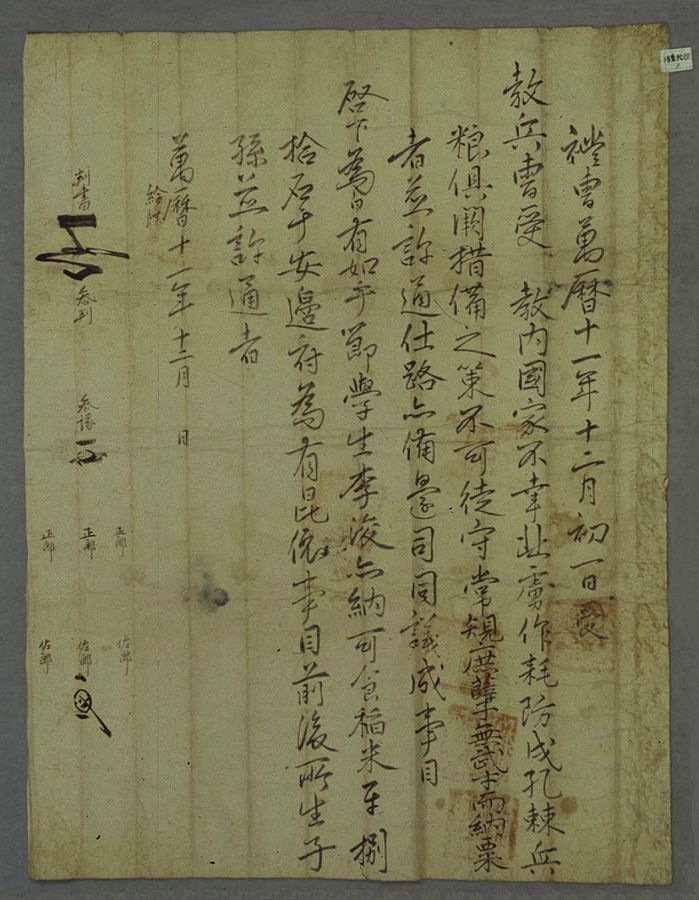 禮曹萬曆十一年十二月初一日受
敎兵曹受 敎內國家不幸北虜作耗防戍孔棘兵
粮俱闕措備之策不可徒守常規庶孽無武才而納粟
者並許通仕路亦備邊司同議成事目
啓下爲白有如乎節學生李浚亦納可食稻米平捌
拾石于安邊府爲有昆依事目前後所生子
孫並許通者
萬曆十一年十二月 日
給牒
正郎 佐郎
判書 參判 參議 正郎 佐郎
正郎 佐郎